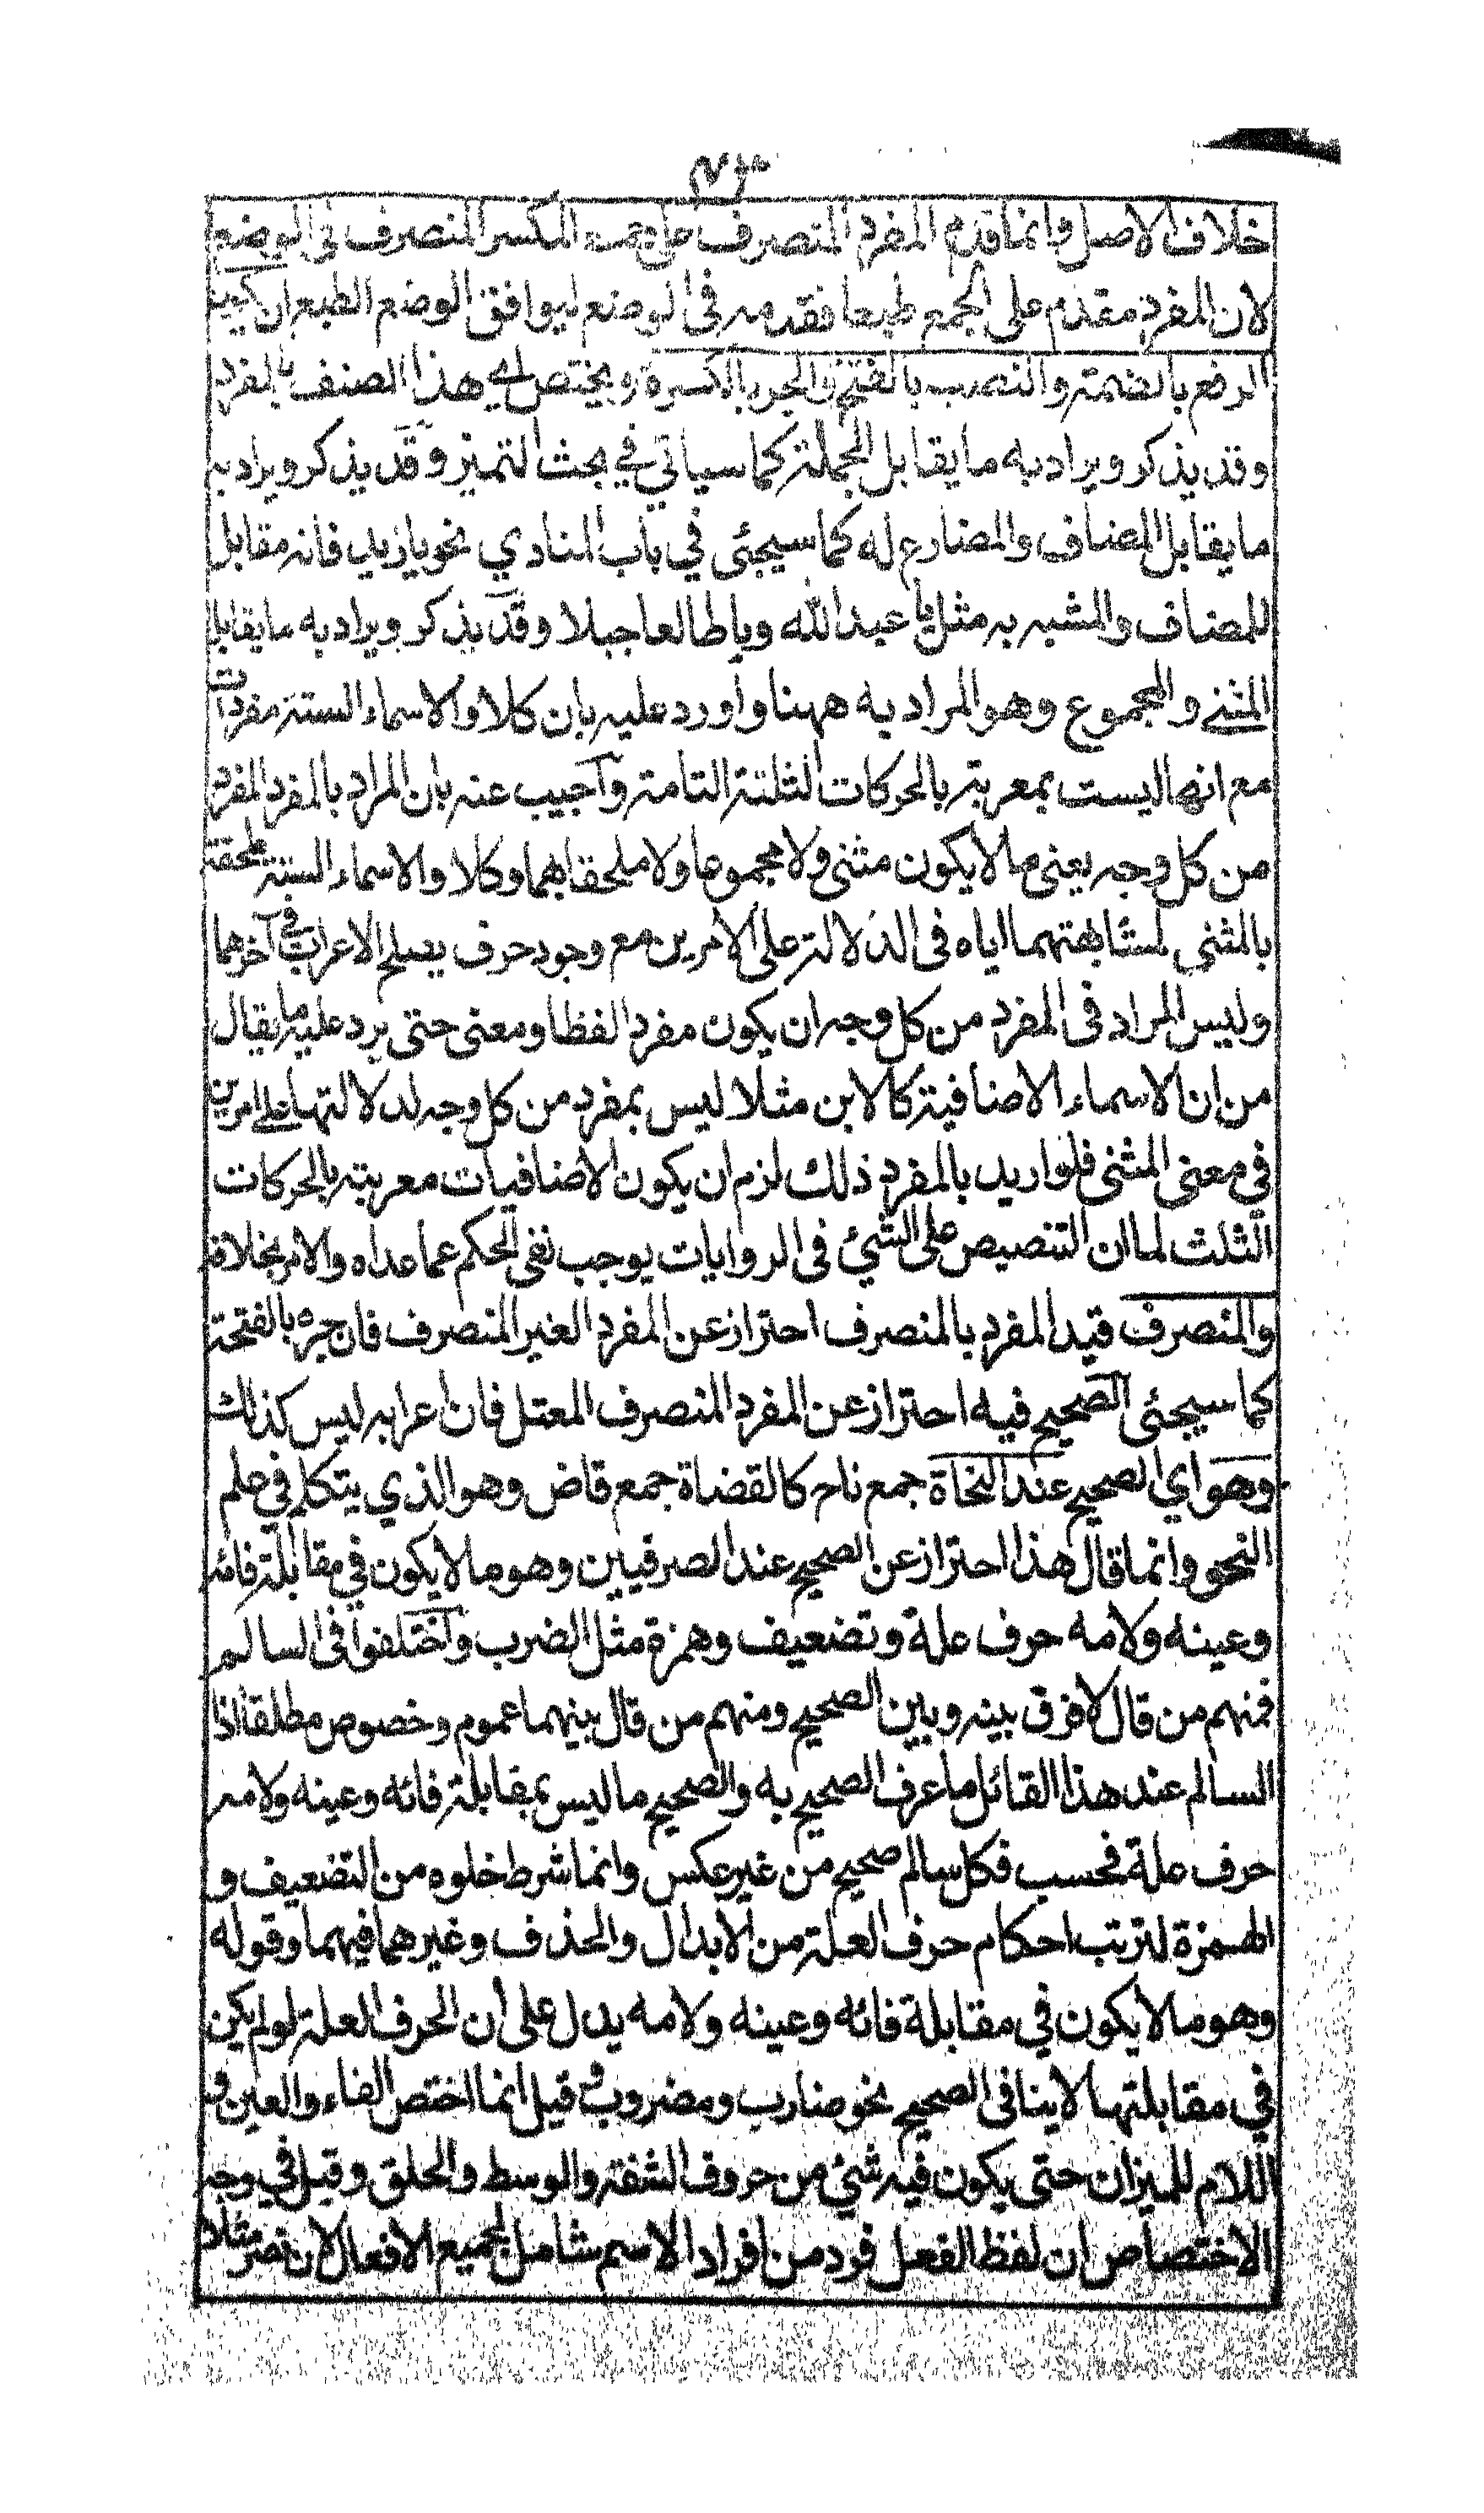 خلاف الاصل وانما قدم المفرد المنصرف على جمع المكسر المنصرف فى الوضع
لان المفرد مقدم على الجمع طبعا فقدمه فى الوضع ليوافق الوضع الطبع ان يكون
الرفع بالضمة والنصب بالفتحة والجر بالكسرة ويختص اي هذا الصنف بالمفرد
وقد يذكر ويراد به ما يقابل الجملة كما سياتي في بحث التميز وقد يذكر ويراد به
ما يقابل المضاف والمضارع له كما سيجئى في باب المنادي نحو يازيد فانه مقابل
للمضاف والمشبه به مثل يا عبد الله ويا طالعا جبلا وقد يذكر ويراد به ما يقابل
المثنے والمجموع وهو المراد به ههنا واورد عليه بان كلا والاسماء الستة مفردات
مع انها ليست بمعربة بالحركات الثلثة التامة واجيب عنه بان المراد بالمفرد المفرد
من كل وجه يعنى ما لا يكون مثنى ولا مجموعا ولا ملحقا بهما وكلا والاسماء الستة ملحقة
بالمثنى لمشابهتهما اياه فى الدلالة على الامرين مع وجود حرف يصلح الاعراب فى آخرهما
وليس المراد فى المفرد من كل وجه ان يكون مفردا لفظا ومعنى حتى يرد عليه ما يقال
من ان الاسماء الاضافية كالابن مثلا ليس بمفرد من كل وجه لدلالتها على امرين
في معنى المثنى فلو اريد بالمفرد ذلك لزم ان يكون الاضافيات معربة بالحركات
الثلث لما ان التنصيص على الشيئ فى الروايات يوجب نفى الحكم عما عداه والامر بخلافه
والمنصرف قيد المفرد بالمنصرف احتراز عن المفرد الغير المنصرف فان جره بالفتحة
كما سيجئى الصحيح فيه احتراز عن المفرد المنصرف المعتل فان اعرابه ليس كذلك
وهو اي الصحيح عند النحاة جمع ناح كالقضاة جمع قاض وهو الذي يتكلم في علم
النحو وانما قال هذا احتراز عن الصحيح عند الصرفيين وهو ما لا يكون في مقابلة فائه
وعينه ولامه حرف علة وتضعيف وهمزة مثل الضرب واختلفوا فى السالم
فمنهم من قال لا فرق بينه وبين الصحيح ومنهم من قال بينهما عموم وخصوص مطلقا اذا
السالم عند هذا القائل ما عرف الصحيح به والصحيح ما ليس بمقابلة فائه وعينه ولامه
حرف علة فحسب فكل سالم صحيح من غير عكس وانما شرط خلوه من التضعيف و
الهمزة لترتب احكام حرف العلة من الابدال والحذف وغيرهما فيهما وقوله
وهو ما لا يكون في مقابلة فائه وعينه ولامه يدل على ان الحرف العلة لو لم يكن
في مقابلتها لا ينافى الصحيح نحو ضارب ومضروب وقيل انما اختص الفاء والعين و
اللام للميزان حتى يكون فيه شيئ من حروف الشفة والوسط والحلق وقيل في وجه
الاختصاص ان لفظ الفعل فرد من افراد الاسم شامل لجميع الافعال لان نصر مثلا